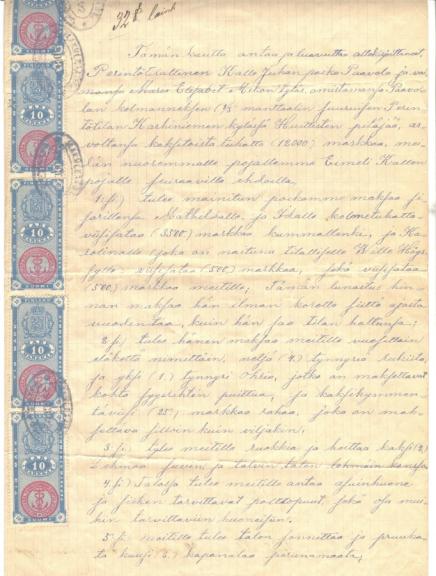 32 §
Tämän kautta antaa ja luovuttaa allekirjoittanut,
Perintötrallinen Kalle Juhan poika Paavola ja vai-
monsa Maria Elisabet Mikon tytär, omistamansa Paavo-
lan kolmanneksen (1/3) manttaalin suuruisen Perin-
tötilan Karhiniemen kylässä Huittisten pitäjää, ar-
voltansa kaksitoista tuhatta (12000) markkaa, mei-
dän nuoremmalle pojallemme Eemeli Kallen
pojalle seuraavilla ehdoilla.
1:si) tulee mainitun poikamme maksaa si-
sarillensa Mathildalle ja Idalle kolmetuhatta
viisisataa (3500) markkaa kummallenki, ja Ka-
rolinalle joka on naituna tilalliselle Wille
viisisataa (500) markkaa, joka viisisataa
(500) markkaa meitille; Tämän lunastus hin-
nan maksaa hän ilman korotta siittä ajasta
vuodentaa, kuin hän saa tilan haltunsa;
2:si) tulee hänen maksaa meitille vuosittain
eläkettä nimittäin: neljä (4.) tynnyriä rukiita,
ja yksi (1.) tynnyri Ohria, jotka on maksettavat
kohta syysrehten puittua, ja kaksikymmen-
täviisi (25;) markkaa rahaa, joka on mak-
settava silloin kuin viljakin;
3:si) tulee meitille ruokkia ja hoittaa kaksi (2.)
Lehmää suven ja talvin talon lehmäin kanssa
4:si) Talosta tulee meitille antaa asuinhuone
ja siihen tarvittavat polttopuut, joka osa mui-
hin tarvittaviin huoneisiin.
5:si) meitille tulee talon lannittaa ja pruuka-
ta kuusi (6.) kapanalaa perunamaata;
10
10
10
10